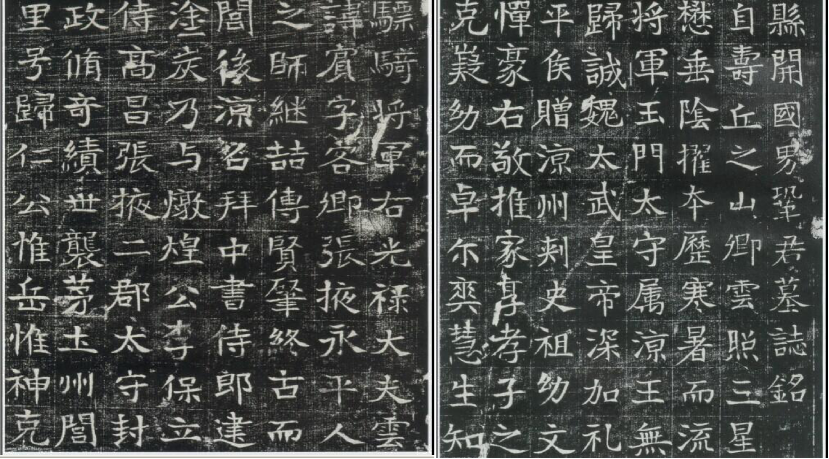 驃騎将軍右光禄大夫雲
諱賓字客卿張掖永平人
之師継喆傳賢肇終古而
閻後涼名拜中書侍郎建
塗炭乃与燉煌公李保立
侍高昌張掖二郡太守封
政脩奇績世襲茅土州閭
里号歸仁公惟岳惟神克
縣開國男鞏君墓誌銘
自壽丘之山卿雲照三星
懋垂陰擢本歷寒暑而流
将軍玉門太守属涼王無
歸誠魏太武皇帝深加礼
平侯贈涼州刾史祖幼文
憚豪右敬推家享孝子之
克嶷幼而卓尔爽慧生知